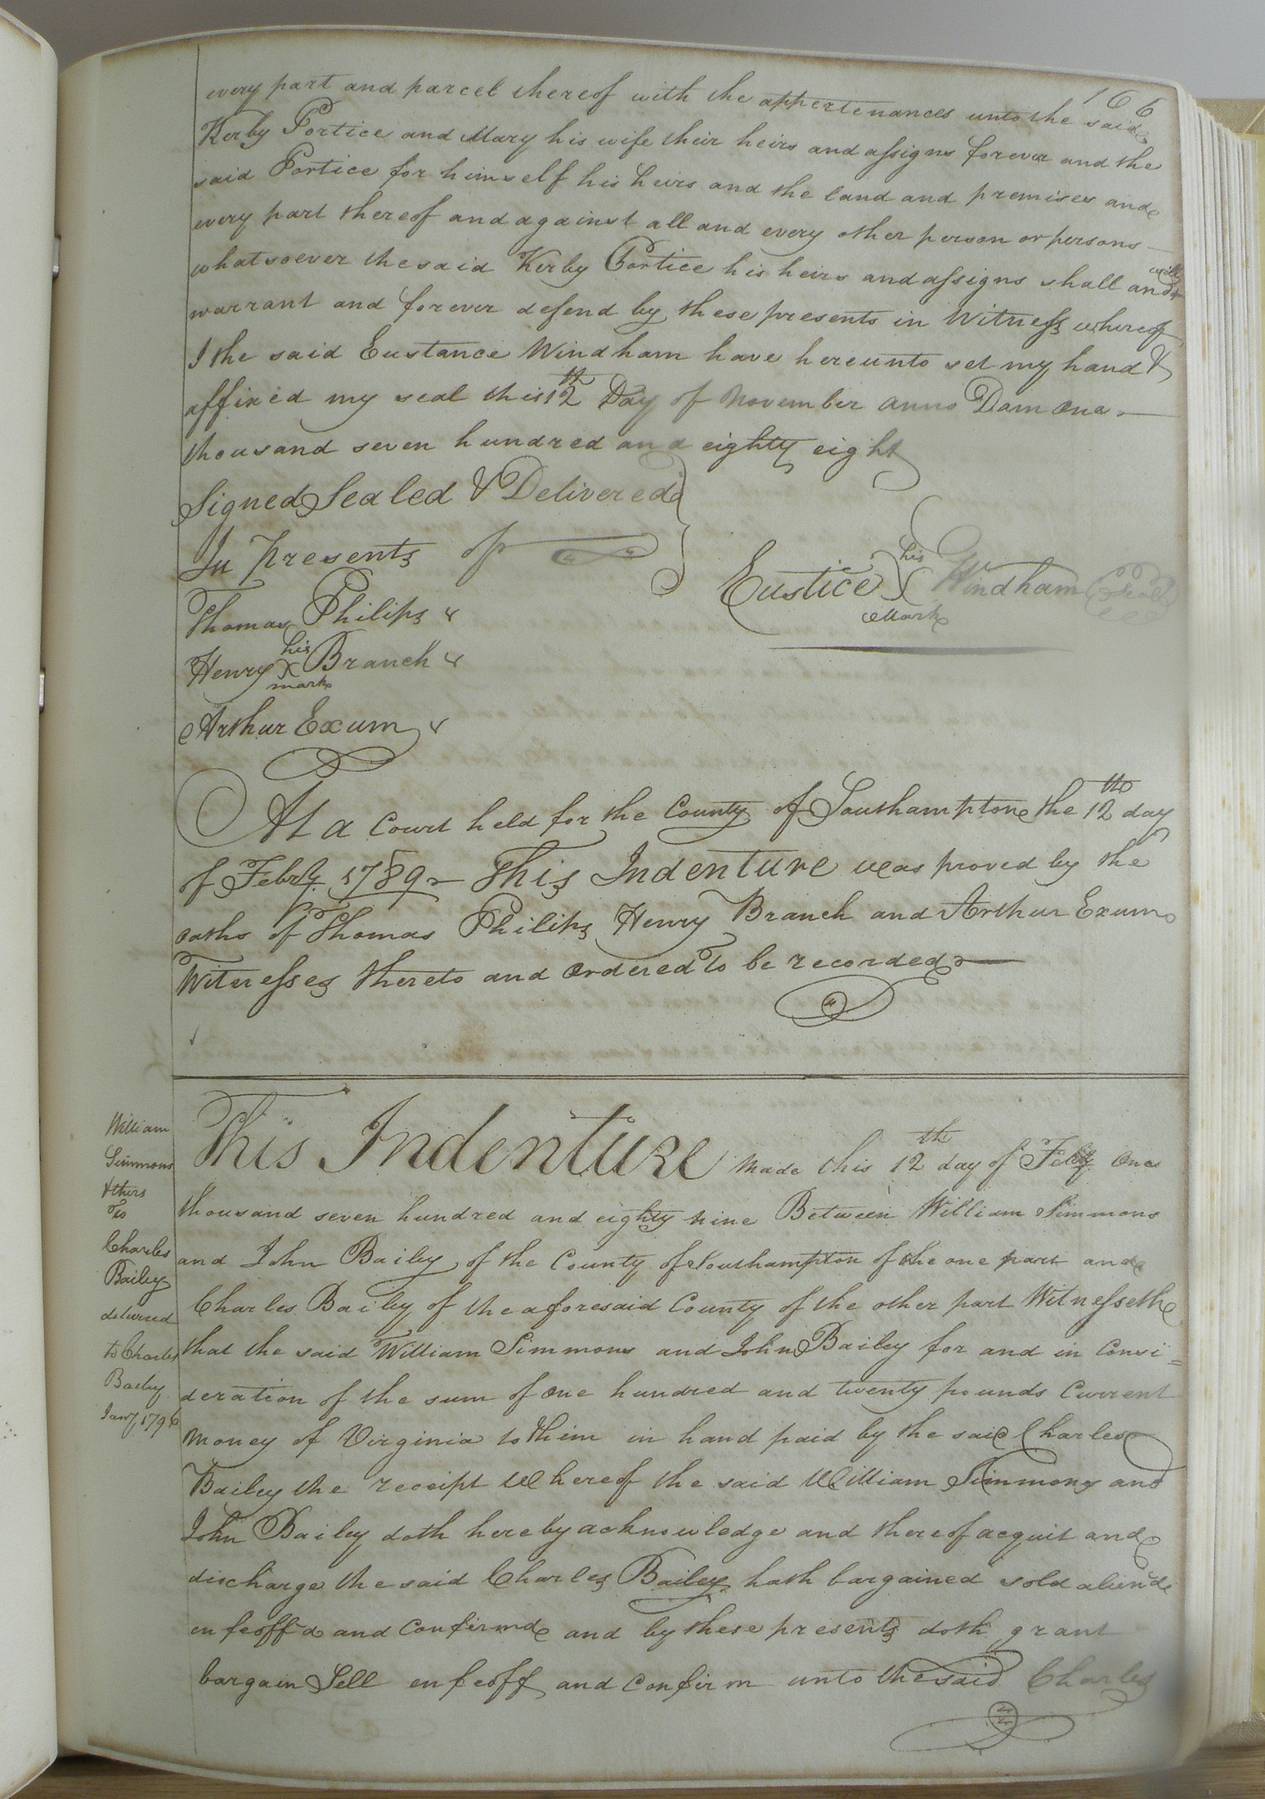 166
every part and parcel thereof with the appertenances unto the said
Kerby Portice and Mary his wife their heirs and assigns forever and the
said Portice for himself his heirs and the land and premises and
every part thereof and against all and every other person or persons
whatsoever the said Kerby Portice his heirs and assigns shall and will
warrant and forever defend by these presents in Witness whereof
I the said Eustance Windham have hereunto set my hand &
affixed my seal this 12th Day of November anno Dom One
thousand seven hundred and eighty eight
Signed Sealed & Delivered
In Presents of
Eustice his X Mark Windham Seal
Thomas Philips
Henry his X mark Branch
Arthur Exum
At a Court held for the County of Southampton the 12th day
of Febry. 1789 This Indenture was proved by the
oaths of Thomas Philips Henry Branch and Arthur Exum
Witnesses thereto and Ordered To be recorded
William
Simmons
&thers
To
Charles
Bailey
delivered
to Charles
Bailey
Jany 1796
This Indenture Made this 12th day of Feby. One
thousand seven hundred and eighty nine Between William Simmons
and John Bailey of the County of Southampton of the one part and
Charles Bailey of the aforesaid County of the other part Witnesseth
that the said William Simmons and John Bailey for and in Consi=
deration of the sum of One hundred and twenty pounds Current
Money of Virginia to them in hand paid by the said Charles
Bailey the receipt Whereof the said William Simmons and
John Bailey doth hereby acknowledge and thereof acquit and
discharge the said Charles Bailey hath bargained sold aliend
enfeoff'd and Confirmd and by these presents doth grant
bargain Sell enfeoff and Confirm unto the said Charles